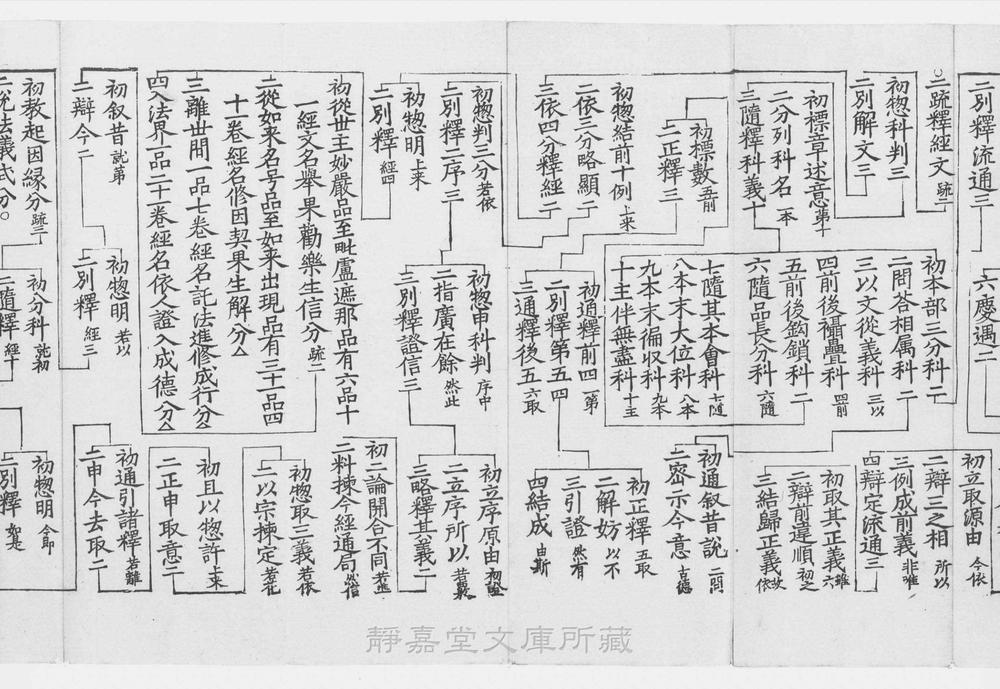 二別釋流通三
六慶遇二
初立取源由 今依
二辯三之相 所以
三例成前義 非唯
四辯定流通三
二疏釋經文 疏二
初惣科判三
二別解文三
初標章述意 第十
二分列科名 一本
三隨釋科義十
初本部三分科二
二問荅相属科二
三以文從義科 三以
四前後攝疊科 四前
五前後鈎鎖科二
六隨品長分科 六隨
七隨其本會科 七隨
八本末大位科 八本
九本末徧収科 九本
十主伴無盡科 十主
初取其正義 六
二辯前違順 初之
三結歸正義 故依
初通叙昔說 二問
二密示今意 古德
初標數 五前
二正釋三
初惣結前十例 上來
二依三分略顯二
三依四分釋經二
初通釋前四 一第
二別釋第五四
三通釋後五 六取
初正釋 五取
二解妨 以不
三引證 然有
四結成 由斯
初惣判三分 若依
二別釋二序三
初惣明 上來
二別釋 經四
初惣申科判 序中
二指廣在餘 然此
三別釋證信三
初立序原由
二立序所以
三略釋其義二
初二論開合不同
二料揀今經通局
初惣取三義 若依
二以宗揀定
初且以惣許 上來
二正申取意二
初從世主妙嚴品至毗盧遮那品有六品十
一經文名舉果勸樂生信分 疏二
二從如來名号品至如來出現品有三十一品四
十一卷經名修因契果生解分
三離世間一品七卷經名託法進修成行分
四入法界一品二十一卷經名依人證入成德分
初叙昔 就第
二辯今二
初惣明 若以
二別釋 經三
初通引諸釋 若離
二申今去取二
初教起因緣分 疏三
二說法義式分
初分科 就初
二隨釋 經十
初惣明 今即
二別釋 如是
靜嘉堂文庫所藏